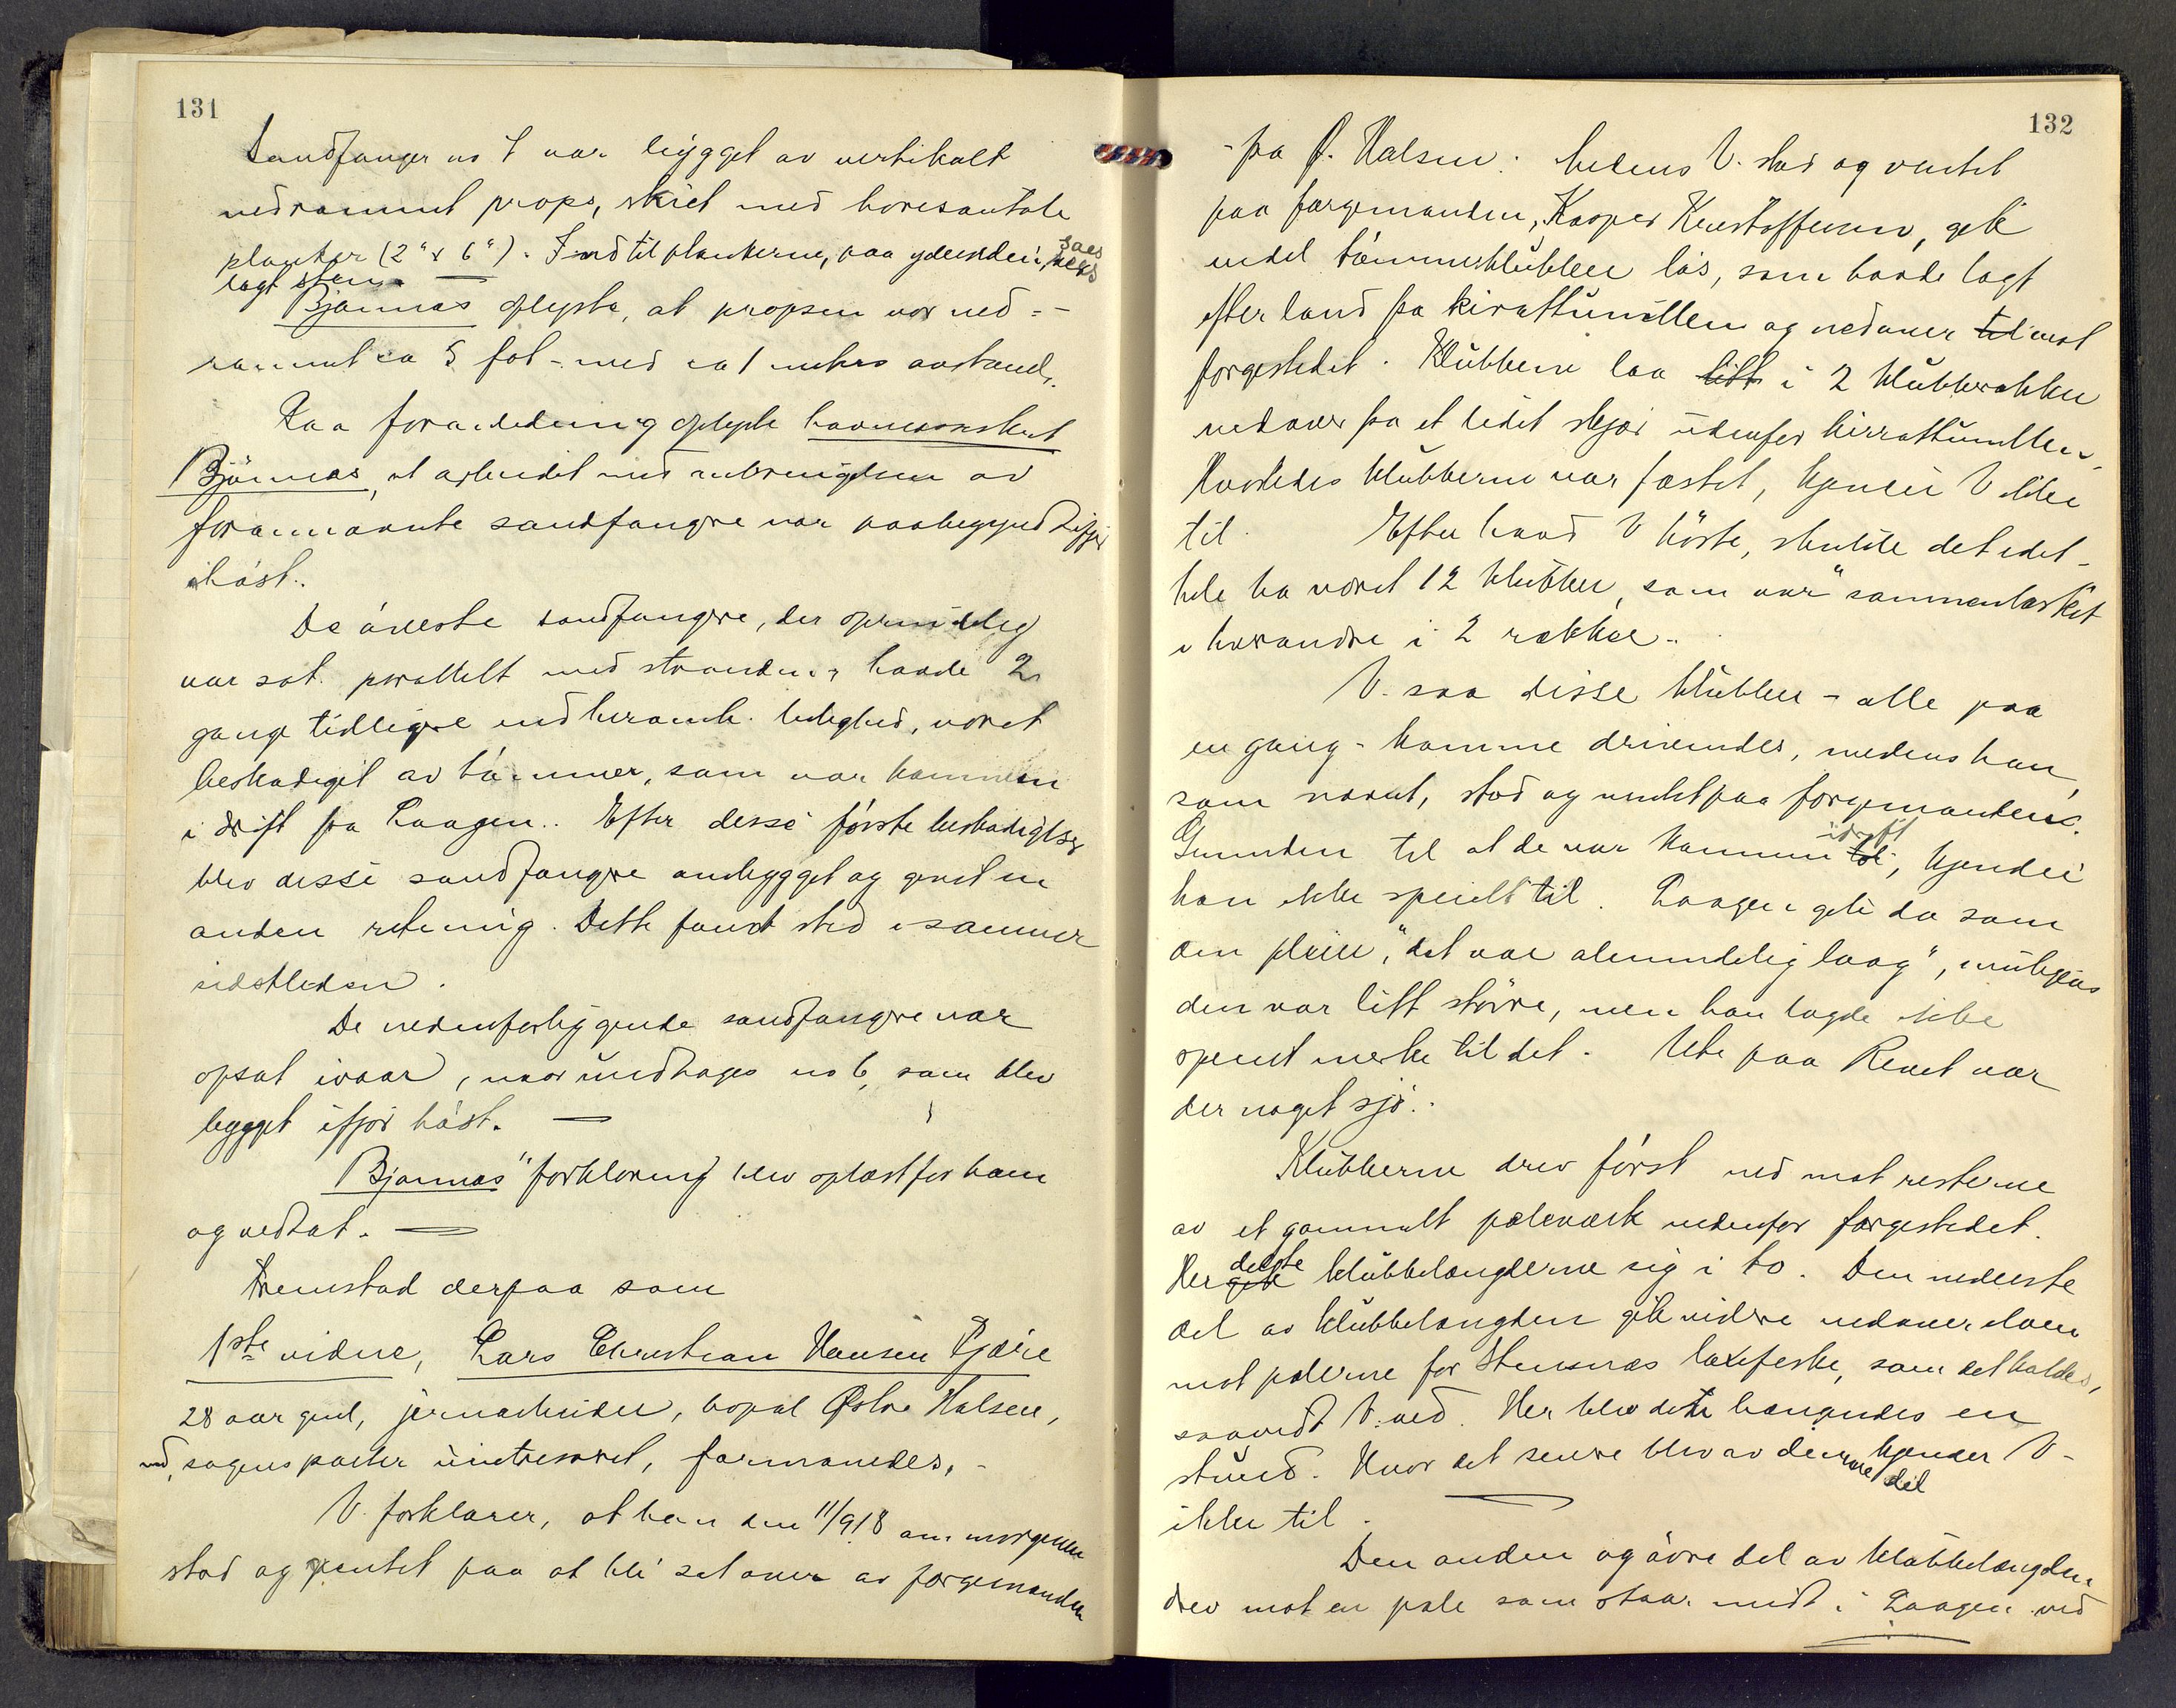 131
Sandfanger no 7 var bygget av vertikalt
nedrammet props, skjet med horesontale
planker (2" x 6"). Ind til plankerne, paa ydersiden, saaes
lagt sten.
Bjønnes oplyste, at propsen var ned-
rammet ca 5 fot - med ca 1 meters avstand.
Paa foranledning oplyste havneassistent
Bjönnes, at arbeidet med anbringelsen av
forannævnte sandfangre var paabegyndt ifjor
höst.
De överste sandfangre, der oprindelig
var sat parallelt med stranden, havde 2
gange tidligere end heromh. leilighed, været
beskadiget av tømmer, som var kommen
i drift fra Laagen. Efter disse første beskadigelser
blev disse sandfangre ombygget og givet en
anden retning. Dette fandt sted i sommer
sidstleden.
De nedenforliggende sandfangre var
opsat ivaar, naar undtages no 6, som blev
bygget ifjor høst.
Bjønnes' forklaring blev oplæst for ham
og vedtat.
Fremstod derpaa som
1ste vidne, Lars Christian Hansen Kjære
28 aar gml, jernarbeider, bopæl Østre Halsen,
med sagens parter uinteresseret, formanedes.
V. forklarer, at han den 11/9 18 om morgenen
stod og ventet paa at bli sat over av færgemanden
132
- fra Ø. Halsen. Medens V. stod og ventet
paa færgemanden, Kasper Kristoffersen, gik
endel tømmerklubber løs, som havde lagt
efter land fra kirattumillen og nedover til mot
færgestedet. Klubberne laa litt i 2 klubberækker
nedover fra et lidet skjær udenfor kirrattumillen.
Hvorledes klubberne var fæstet, kjender V ikke
til. Efter hvad V hørte, skulde det idet-
hele ha været 12 klubber, som var "sammenlasket"
i hverandre i 2 rækker.
V. saa disse klubber - alle paa
en gang - komme drivendes, medens han,
som nævnt, stod og ventet paa færgemanden.
Grunden til at de var kommen i drift, kjender
han ikke specielt til. Laagen gik da som
den pleier, "det var almindelig laag", muligens
den var litt større, men han lagde ikke
specielt merke til det. Ute paa Revet var
der noget sjø.
Klubberne drev først ned mot resterne
av et gammelt pæleværk nedenfor færgestedet.
Her gik delte klubbelængderne sig i to. Den nederste
del av klubbelængden gik videre nedover elven
mot pælerne for Stensnæs laxefiske, som det kaldes,
saavidt V. ved. Her blev dette hængendes en
stund. Hvor det senere blev av denne del kjender V-
ikke til.
Den anden og øvre del av klubbelængden
drev mot en pæle som staar midt i Laagen ved